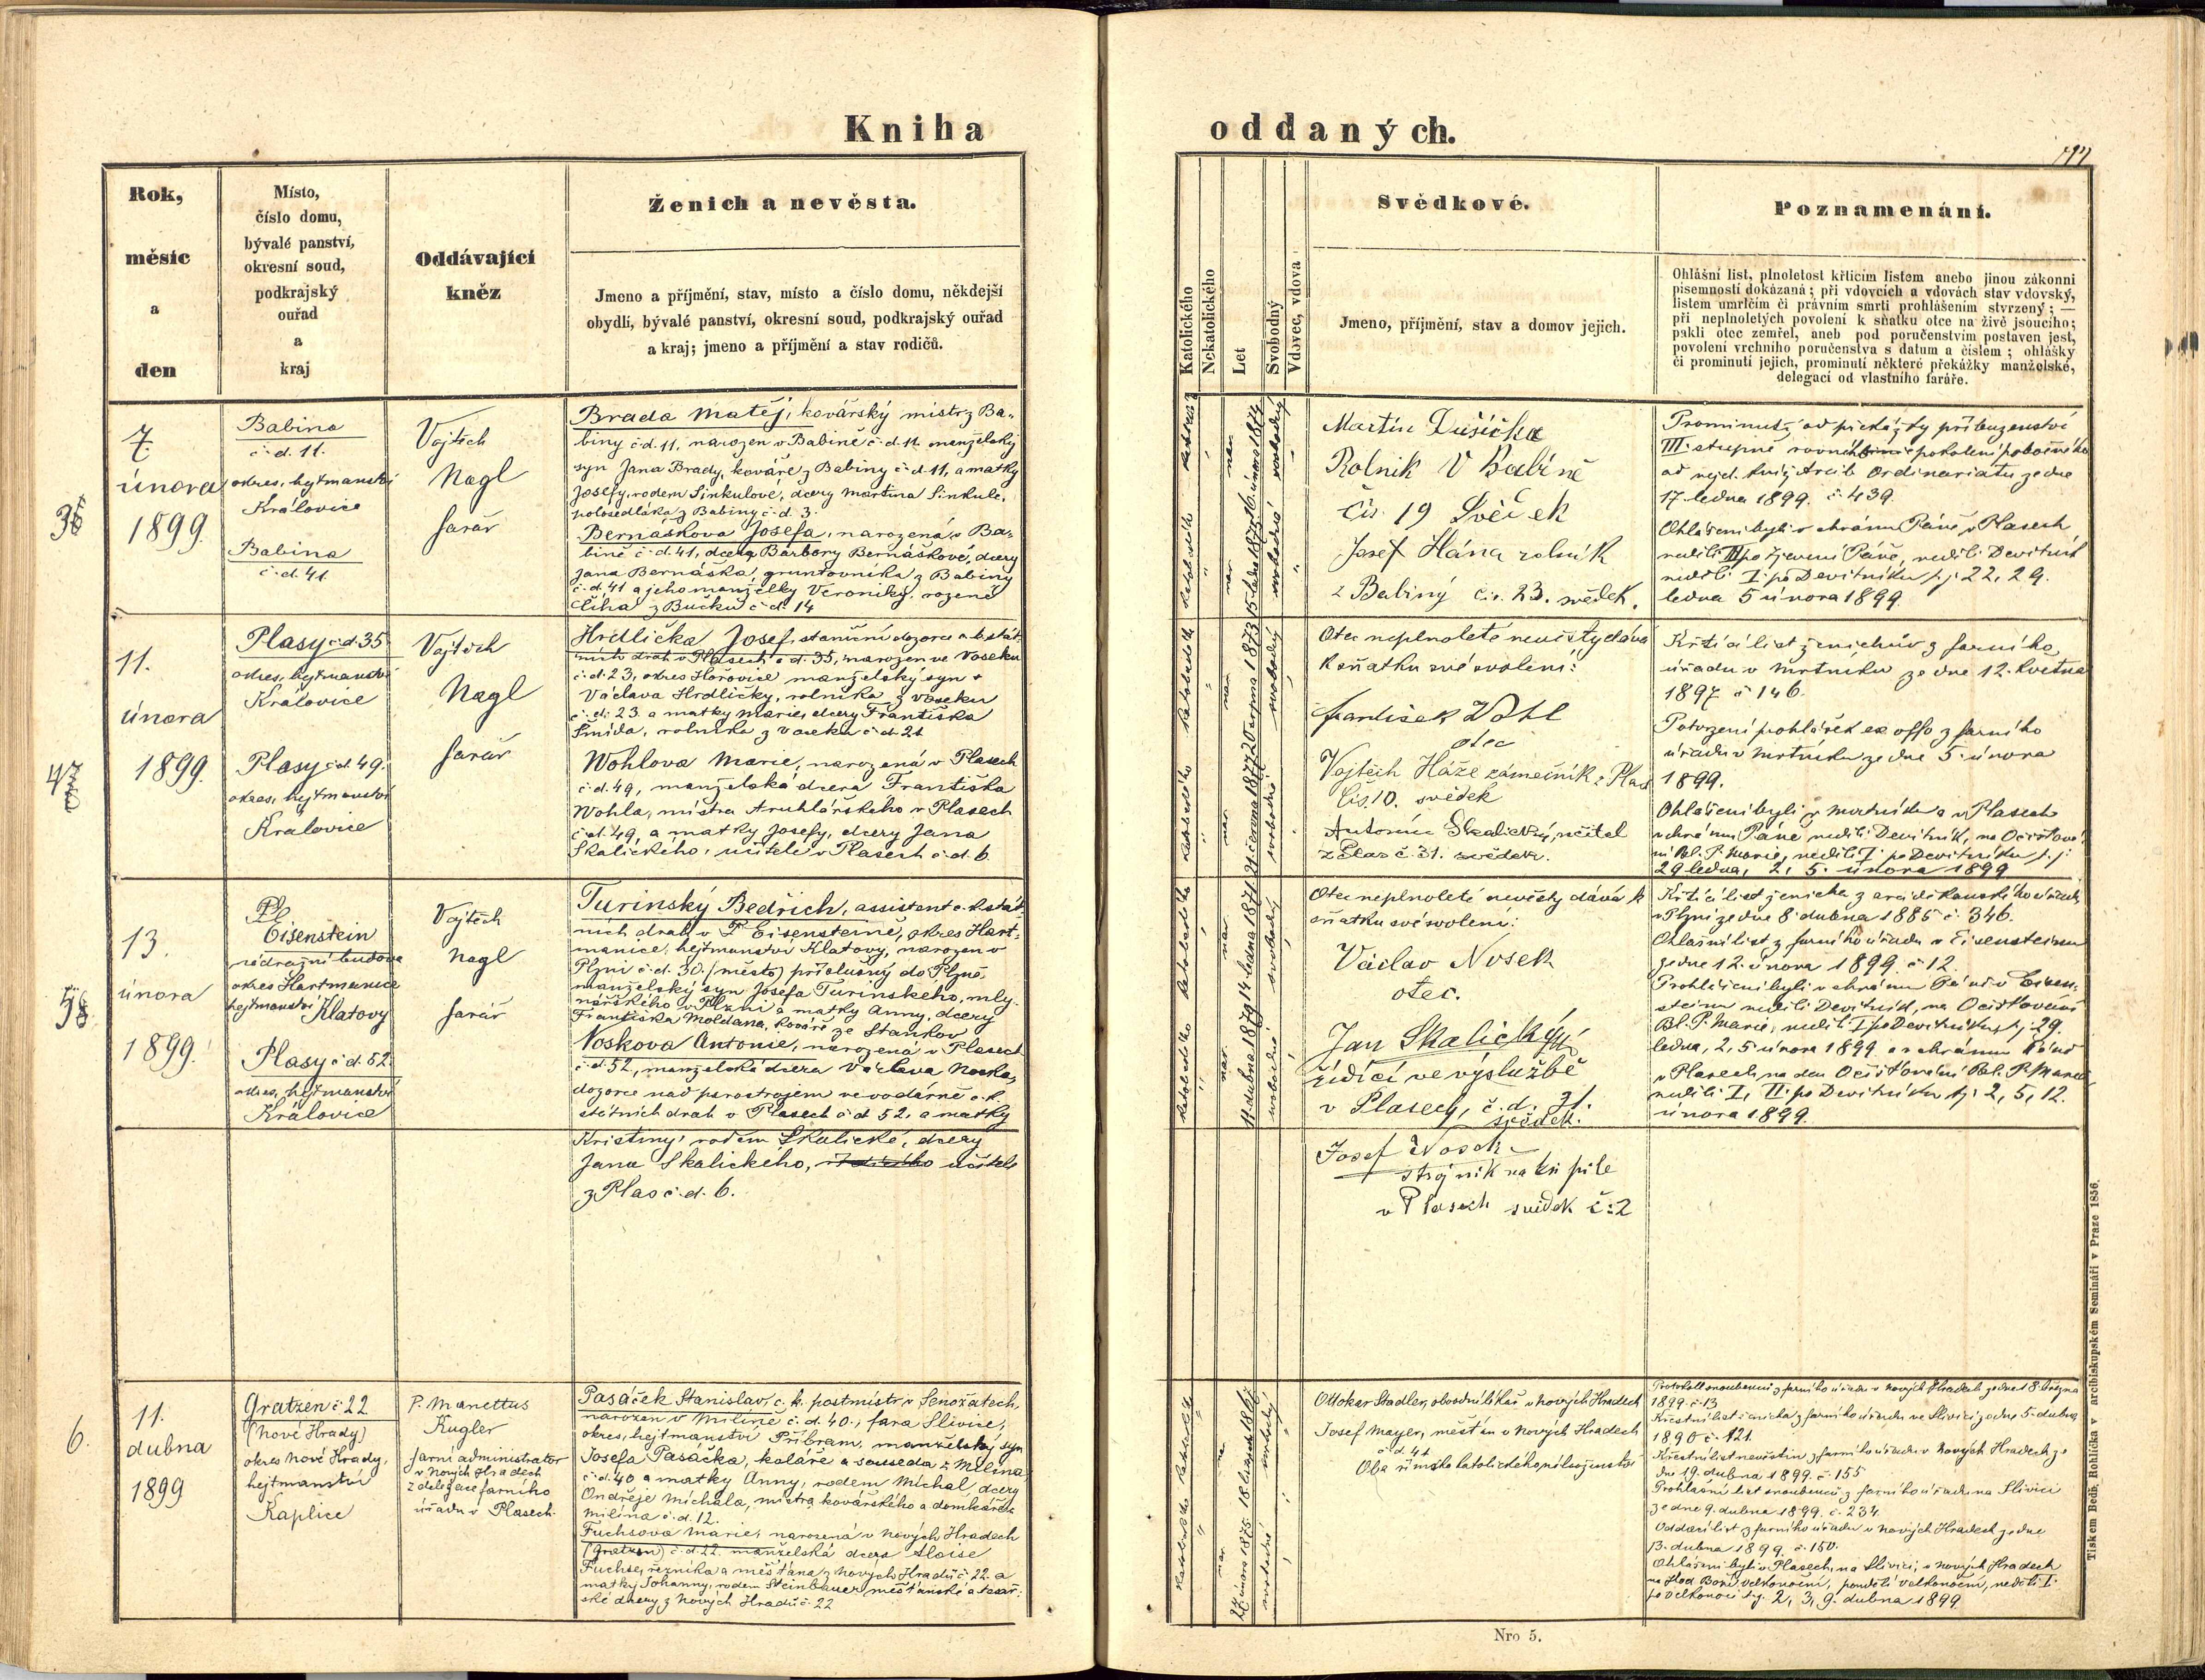 Kniha
oddaných.
Rok,
měsíc
a
den
Místo,
číslo domu,
bývalé panství,
okresní soud,
podkrajský
ouřad
a
kraj
Oddávající
kněz
Ženich a nevěsta.
Jmeno a příjmění, stav, místo a číslo domu, někdejší
obydlí, bývalé panství, okresní soud, podkrajský ouřad
a kraj; jmeno a příjmění a stav rodičů.
Katolického
Nekatolického
Let
Svobodný
Vdovec, vdova
Svědkové.
Jmeno, příjmění, stav a domov jejich.
Poznamenání.
Ohlášní list, plnoletost křticím listem anebo jinou zákonní
písemností dokázaná; při vdovcích a vdovách stav vdovský,
listem umrlčím či právním smrti prohlášením stvrzený; —
při neplnoletých povolení k sňatku otce na živě jsoucího;
pakli otec zemřel, aneb pod poručenstvím postaven jest,
povolení vrchního poručenstva s datum a číslem; ohlášky
či prominutí jejich, prominutí některé překážky manželské,
delegací od vlastního faráře.
7.
února
1899.
Babina
č. d. 11.
okres. hejtmanství
Kralovice
Babina
č. d. 41
Vojtěch
Nagl
farář
Brada Matěj, kovářský mistr z Ba-
biny č. d. 11, narozen v Babině č. d. 11 manželský
syn Jana Brady, kováře z Babiny č. d. 11, a matky
Josefy, rodem Šinkulové, dcery Martina Šinkule,
polosedláka z Babiny č. d. 3.
Bernášková Josefa, narozená v Ba-
bině č. d. 41, dcera Barbory Bernáškové, dcery
Jana Bernáška, gruntovníka z Babiny
č. d. 41 a jeho manželky Veroniky, rozené
Číha z Bučku č. d. 14
Martin Dušička
Rolník v Babině
čís. 19 Svědek
Josef Hána rolník
z Babiny čís. 23. svědek.
Prominutí od překážky příbuzenství
III. stupně pokolení pobočného
od nejd. kníž. Arcib. Ordinariatu ze dne
17. ledna 1899. č. 439.
Ohlášeni byli v chrámu Páně v Plasech
neděli III po Zjevení Páně, neděli Devítník
neděli I. po Devítníku t. j. 22, 29.
ledna 5 února 1899.
11.
února
1899.
Plasy č. d. 35
okres. hejtmanství
Kralovice
Plasy č. d. 49.
okres. hejtmanství
Kralovice
Vojtěch
Nagl
farář
Hrdlička Josef, staniční dozorce c. k. stát-
ních drah v Plasech č. d. 35, narozen ve Voseku
č. d. 23, okres Hořovice manželský syn
Václava Hrdličky, rolníka z Voseku
č. d. 23 a matky Marie, dcery Františka
Šmída, rolníka z Voseku č. d. 21
Wohlova Marie, narozená v Plasech
č. d. 49, manželská dcera Františka
Wohla, mistra truhlářského v Plasech
č. d. 49, a matky Josefy, dcery Jana
Skalického, učitele v Plasech č. d. 6.
Otec neplnoleté nevěsty dává
k sňatku své svolení:
František Wohl
otec
Vojtěch Háže zámečník z Plas
čís. 10. svědek
Antonín Skalický, učitel
z Plas č. 31. svědek.
Křticí list ženichův z farního
úřadu v Mrtníku ze dne 12. května
1897 č 146.
Potvrzení prohlášek ex offo z farního
úřadu v Mrtníku ze dne 5 února
1899.
Ohlášeni byli v Mrtníku a v Plasech
v chrámu Páně neděli Devítník, na Očišťová-
ní Bl. P. Marie, neděli I. po Devítníku t. j.
29 ledna, 2, 5. února 1899
13.
února
1899.
Eisenstein
nádražní budova
okres Hartmanice
hejtmanství Klatovy
Plasy č. d. 52.
okres. hejtmanství
Kralovice
Vojtěch
Nagl
farář
Turinský Bedřich, assistent c. k. stát-
ních drah v Eisensteině, okres Hart-
manice, hejtmanství Klatovy, narozen v
Plzni č. d. 30. (město) příslušný do Plzně,
manželský syn Josefa Turinského, mly-
nářského v Plzni a matky Anny, dcery
Františka Moldana, kováře ze Staňkov
Noskova Antonie, narozená v Plasech
č. d. 52, manželská dcera Václava Noska,
dozorce nad parostrojem ve vodárně c. k.
státních drah v Plasech č. d 52. a matky
Kristiny, rodem Skalické, dcery
Jana Skalického, učitele
z Plas č. d. 6.
Otec neplnoleté nevěsty dává k
sňatku své svolení:
Václav Nosek
otec.
Jan Skalický
řídící ve výslužbě
v Plasech, č. d. 31.
svědek.
Josef Nosek
strojník na pile
v Plasech svědek č: 2
Křticí list ženicha z arciděkanského úřadu
v Plzni ze dne 8 dubna 1885 č. 346.
Ohlašní list z farního úřadu v Eisensteinu
ze dne 12. února 1899 č 12
Prohlášeni byli v chrámu Páně v Eisen-
steinu neděli Devítník, na Očišťování
Bl. P. Marie, neděli I. po Devítníku t. j. 29.
ledna, 2, 5 února 1899 a v chrámu Páně
v Plasech na den Očišťování Bl. P. Marie
neděli I, II. po Devítníku t. j. 2, 5, 12.
února 1899.
6.
11.
dubna
1899
Gratzen č 22
(Nové Hrady)
okres Nové Hrady,
hejtmanství
Kaplice
P. Manettus
Kugler
farní administrator
v Nových Hradech
z delegace farního
úřadu v Plasech.
Pasáček Stanislav, c. k. postmistr v Senožatech,
narozen v Milíně č. d. 40., fara Slivice,
okres. hejtmanství Příbram, manželský syn
Josefa Pasáčka, koláře a souseda z Milína
č. d. 40 a matky Anny, rodem Michal, dcery
Ondřeje Michala, mistra kovářského a domkáře z
Milína č. d. 12.
Fuchsova Marie, narozená v Nových Hradech
(Gratzen) č. d. 22. manželská dcera Aloise
Fuchse, řezníka a měšťana z Nových Hradů č. 22. a
matky Johanny, rodem Steinbauer měšťanské a tesař-
ské dcery z Nových Hradů č. 22
Ottokar Stadler, obvodní lékař v Nových Hradech
Josef Mayer, měšťan v Nových Hradech
č. d. 41
Oba římsko katolického náboženství
Protokoll snoubenců z farního úřadu v Nových Hradech ze dne 18. března
1899. č. 13
Křestní list ženicha z farního úřadu ve Slivici ze dne 5. dubna
1890 č. 121.
Křestní list nevěstin z farního úřadu v Nových Hradech ze
dne 19. dubna 1899. č. 155
Prohlašní list snoubenců z farního úřadu na Slivici
ze dne 9. dubna 1899. č. 234
Oddací list z farního úřadu v Nových Hradech ze dne
13. dubna 1899. č. 150.
Ohlášeni byli v Plasech, na Slivici, v Nových Hradech
na Hod Boží velkonoční, pondělí velkonoční, neděli I.
po velkonoci t. j. 2, 3, 9. dubna 1899
Nro 5.
Tiskem Bedř. Rohlíčka v arcibiskupském Semináři v Praze 1856.